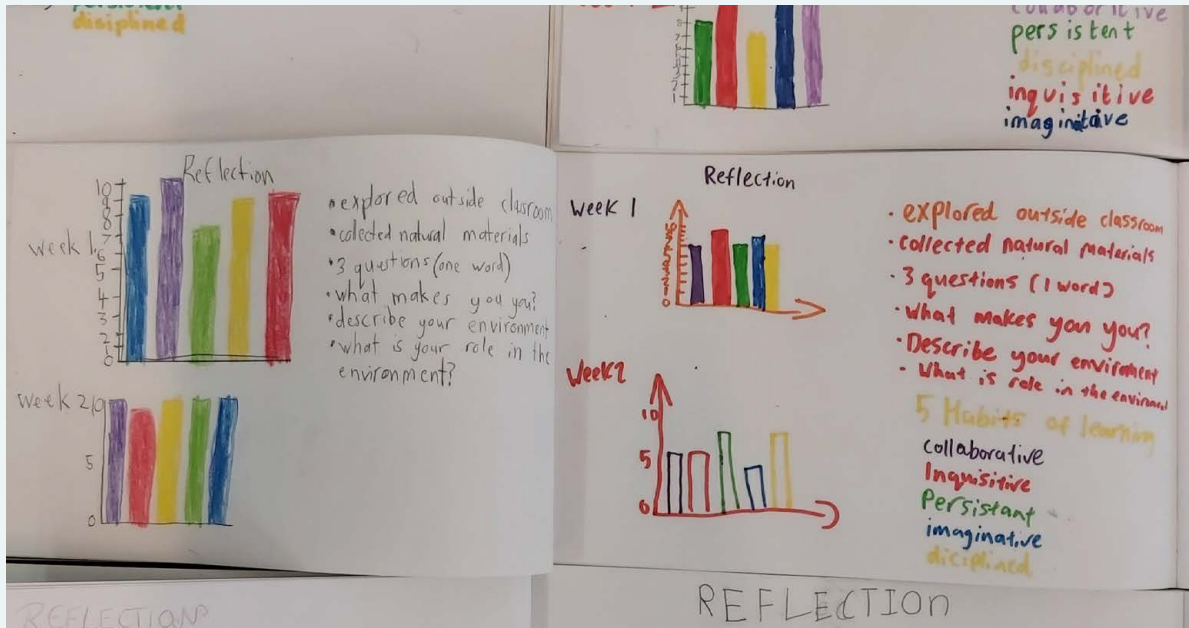 disiplined
persistent
disciplined
inquisitive
imaginitaive
Reflection
week 1
10
9
8
7
6
5
4
3
2
1
0
• explored outside classroom
• colected natural materials
• 3 questions (one word)
• what makes you you?
• describe your environment
• what is your role in the
environment?
week 2
10
5
0
Reflection
Week 1
• explored outside classroom
• collected natural materials
• 3 questions (1 word)
• What makes you you?
• Describe your envirement
• What is role in the enviroment
5 Habits of learning
collaborative
Inquisitive
Persistant
imaginative
diciplined
Week 2
10
5
0
REFLECTION
REFLECTION